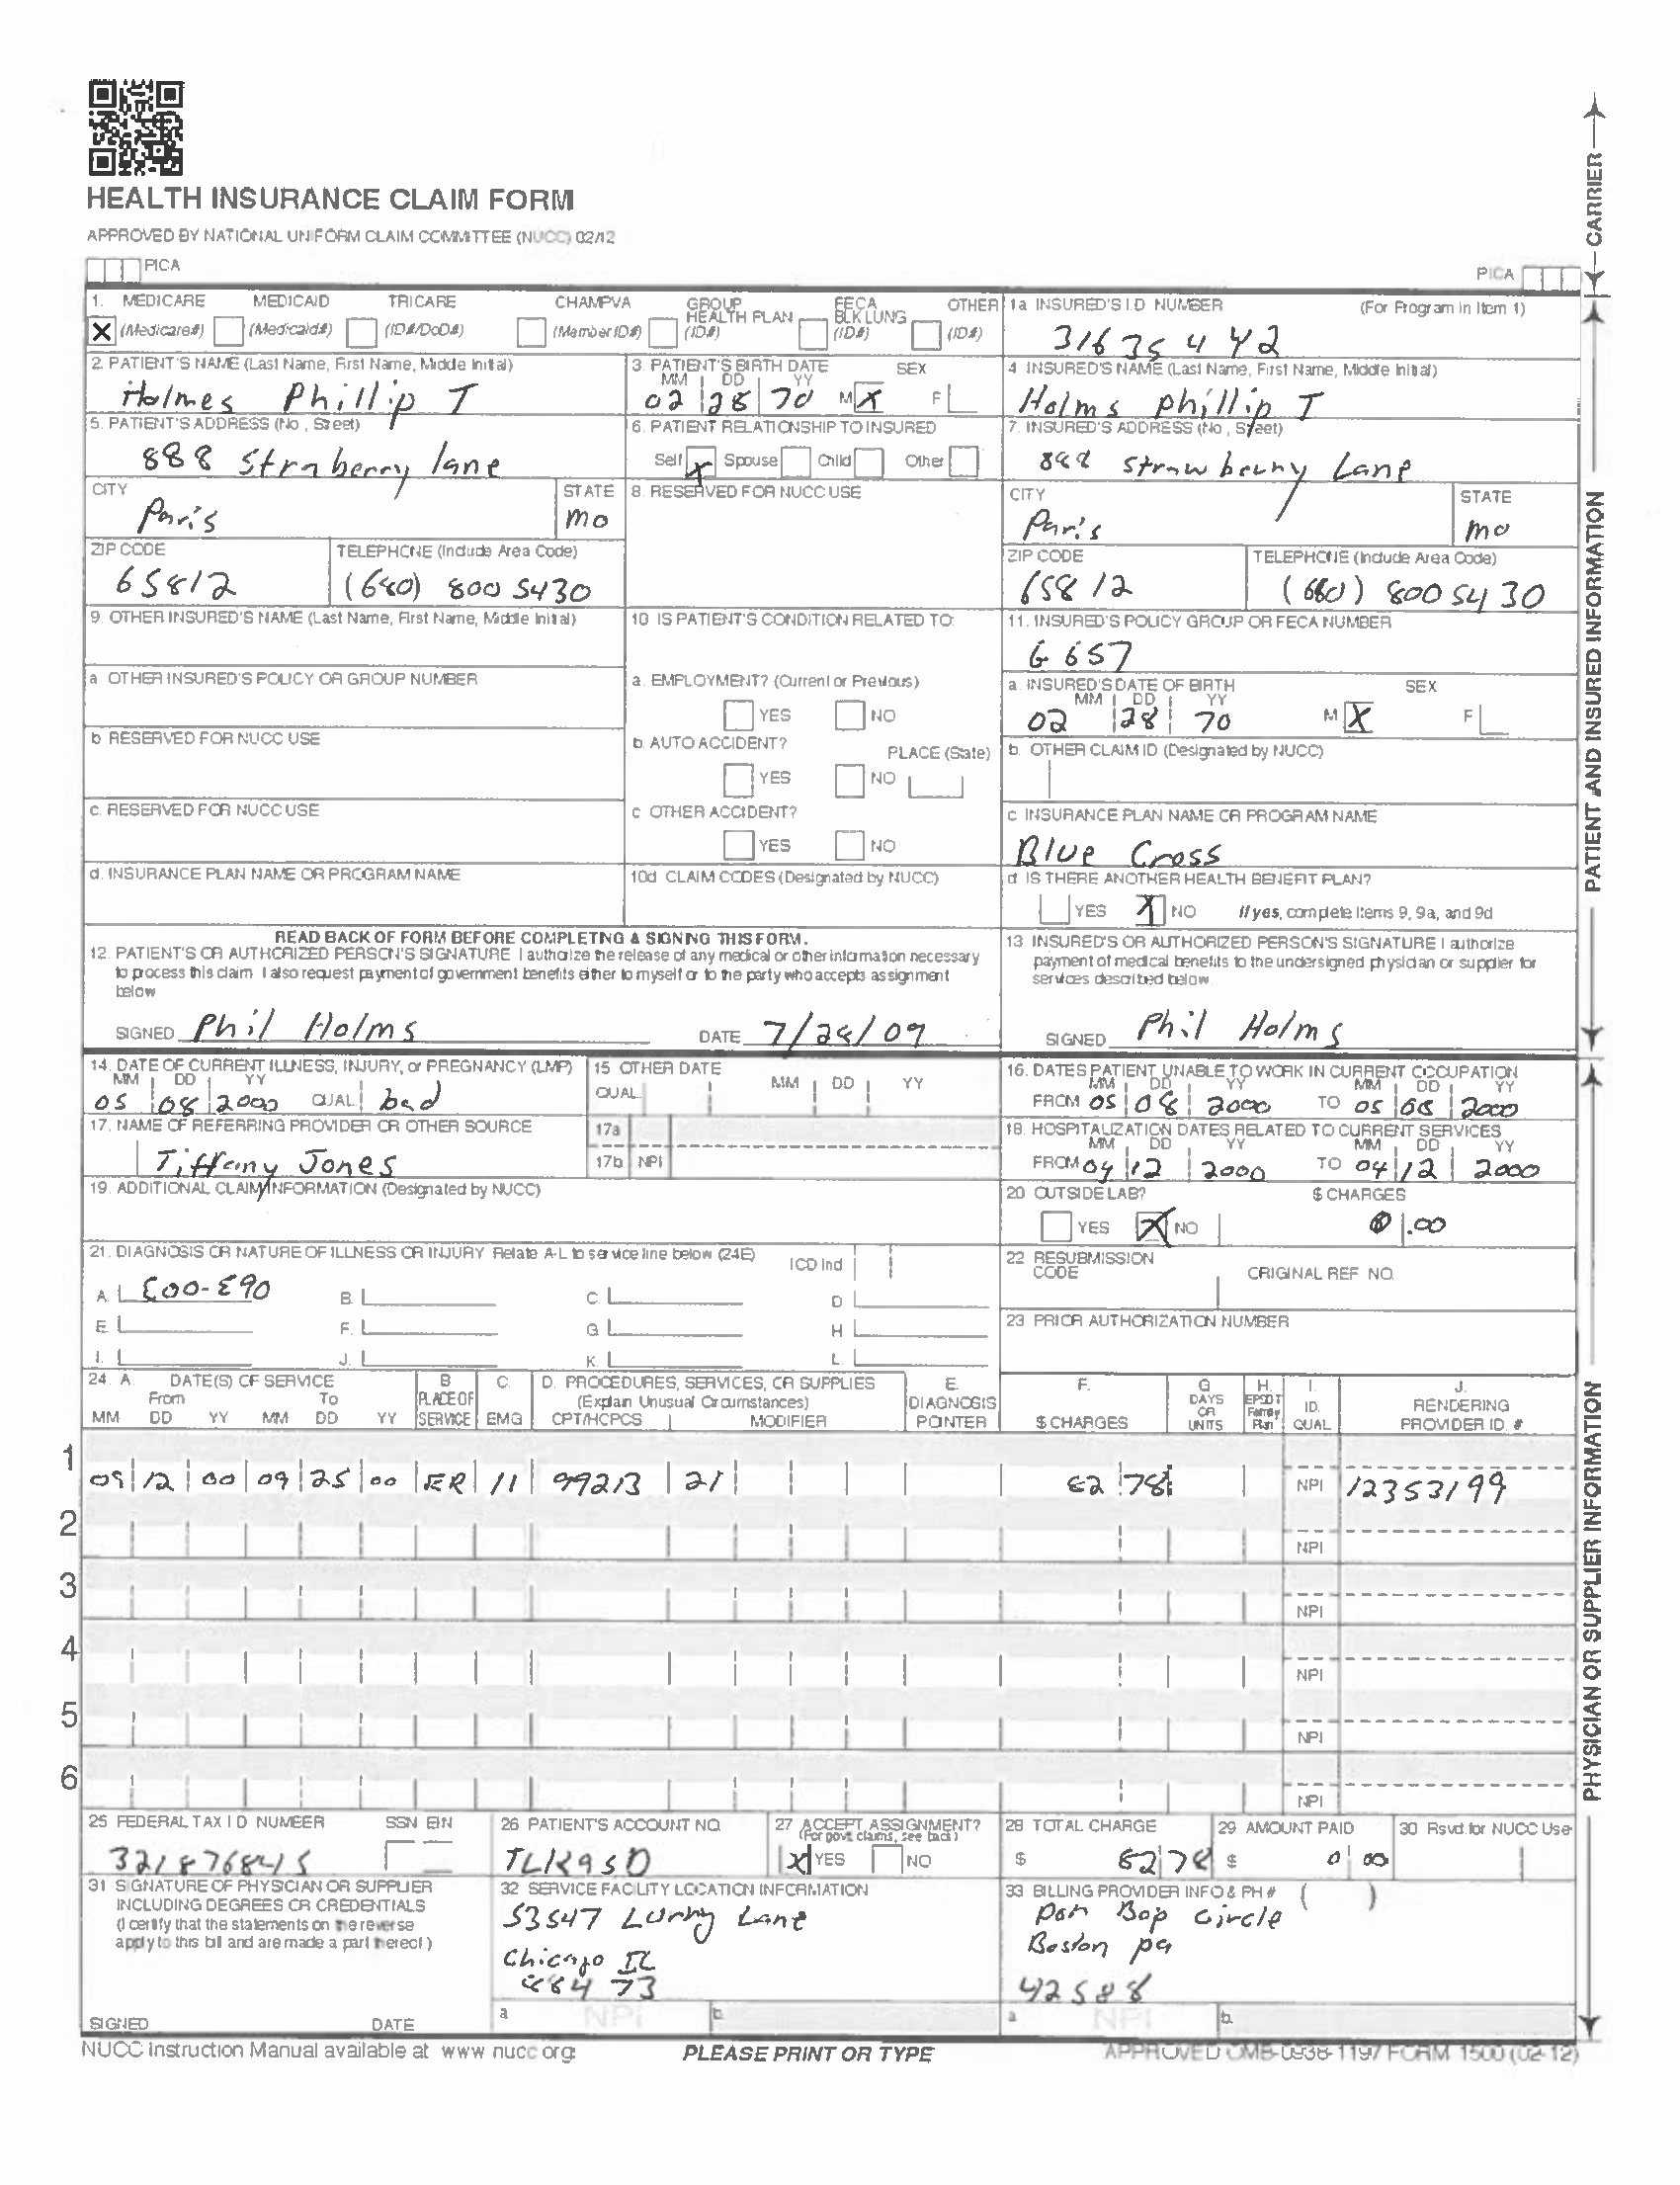 HEALTH INSURANCE CLAIM FORM
APPROVED BY NATIONAL UNIFORM CLAIM COMMITTEE (NUCC) 02/12
PICA PICA
CARRIER
1. MEDICARE MEDICAID TRICARE CHAMPVA GROUP HEALTH PLAN FECA BLK LUNG OTHER
X (Medicare#) (Medicaid#) (ID#/DoD#) (Member ID#) (ID#) (ID#) (ID#)
1a INSURED'S I.D NUMBER (For Program in Item 1)
31635442
2. PATIENT'S NAME (Last Name, First Name, Middle Initial)
Holmes Phillip T
3. PATIENT'S BIRTH DATE SEX
MM DD YY
02 28 70 M X F
4 INSURED'S NAME (Last Name, First Name, Middle Initial)
Holms Phillip T
5. PATIENT'S ADDRESS (No, Street)
888 Straberry lane
6. PATIENT RELATIONSHIP TO INSURED
Self X Spouse Child Other
7. INSURED'S ADDRESS (No, Street)
888 Strawberry Lane
CITY STATE
Paris mo
8. RESERVED FOR NUCC USE
CITY STATE
Paris mo
ZIP CODE TELEPHONE (Include Area Code)
65812 (680) 800 5430
ZIP CODE TELEPHONE (Include Area Code)
65812 (660) 800 5430
9. OTHER INSURED'S NAME (Last Name, First Name, Middle Initial)
10 IS PATIENT'S CONDITION RELATED TO:
11. INSURED'S POLICY GROUP OR FECA NUMBER
G 657
a OTHER INSURED'S POLICY OR GROUP NUMBER
a. EMPLOYMENT? (Current or Previous)
YES NO
a. INSURED'S DATE OF BIRTH SEX
MM DD YY
02 28 70 M X F
b RESERVED FOR NUCC USE
b. AUTO ACCIDENT? PLACE (State)
YES NO
b. OTHER CLAIM ID (Designated by NUCC)
c. RESERVED FOR NUCC USE
c OTHER ACCIDENT?
YES NO
c INSURANCE PLAN NAME OR PROGRAM NAME
Blue Cross
d. INSURANCE PLAN NAME OR PROGRAM NAME
10d CLAIM CODES (Designated by NUCC)
d IS THERE ANOTHER HEALTH BENEFIT PLAN?
YES X NO If yes, complete items 9, 9a, and 9d
PATIENT AND INSURED INFORMATION
READ BACK OF FORM BEFORE COMPLETING & SIGNING THIS FORM.
12. PATIENT'S OR AUTHORIZED PERSON'S SIGNATURE I authorize the release of any medical or other information necessary
to process this claim I also request payment of government benefits either to myself or to the party who accepts assignment
below
SIGNED Phil Holms DATE 7/28/09
13 INSURED'S OR AUTHORIZED PERSON'S SIGNATURE I authorize
payment of medical benefits to the undersigned physician or supplier for
services described below.
SIGNED Phil Holms
14. DATE OF CURRENT ILLNESS, INJURY, or PREGNANCY (LMP)
MM DD YY
05 08 2000 QUAL bad
15 OTHER DATE
QUAL MM DD YY
16. DATES PATIENT UNABLE TO WORK IN CURRENT OCCUPATION
MM DD YY MM DD YY
FROM 05 08 2000 TO 05 08 2000
17. NAME OF REFERRING PROVIDER OR OTHER SOURCE
Tiffany Jones
17a
17b NPI
18. HOSPITALIZATION DATES RELATED TO CURRENT SERVICES
MM DD YY MM DD YY
FROM 04 12 2000 TO 04 12 2000
19. ADDITIONAL CLAIM INFORMATION (Designated by NUCC)
20 OUTSIDE LAB? $ CHARGES
YES X NO 0 .00
21. DIAGNOSIS OR NATURE OF ILLNESS OR INJURY Relate A-L to service line below (24E) ICD Ind
A. E00-E90 B. C. D
E. F. G H
I. J. K. L.
22 RESUBMISSION CODE ORIGINAL REF NO.
23 PRIOR AUTHORIZATION NUMBER
24. A. DATE(S) OF SERVICE B C. D. PROCEDURES, SERVICES, OR SUPPLIES E. F. G H. I. J.
From To PLACE OF (Explain Unusual Circumstances) DIAGNOSIS DAYS OR EPSDT Family ID. RENDERING
MM DD YY MM DD YY SERVICE EMG CPT/HCPCS MODIFIER POINTER $ CHARGES UNITS Plan QUAL PROVIDER ID. #
1 09 12 00 09 25 00 ER 11 99213 21 82 78 NPI 12353199
2 NPI
3 NPI
4 NPI
5 NPI
6 NPI
25 FEDERAL TAX I D NUMBER SSN EIN
321876845
26 PATIENT'S ACCOUNT NO.
TLK9SD
27 ACCEPT ASSIGNMENT?
(For govt. claims, see back)
X YES NO
28 TOTAL CHARGE
$ 82 78
29 AMOUNT PAID
$ 0 00
30 Rsvd for NUCC Use
31 SIGNATURE OF PHYSICIAN OR SUPPLIER
INCLUDING DEGREES OR CREDENTIALS
(I certify that the statements on the reverse
apply to this bill and are made a part thereof)
SIGNED DATE
32 SERVICE FACILITY LOCATION INFORMATION
53547 Lane
Chicago IL
88473
a NPI b
33 BILLING PROVIDER INFO & PH # ( )
Bop Circle
Boston pa
42588
a NPI b.
PHYSICIAN OR SUPPLIER INFORMATION
NUCC Instruction Manual available at www nucc org
PLEASE PRINT OR TYPE
APPROVED OMB-0938-1197 FORM 1500 (02-12)